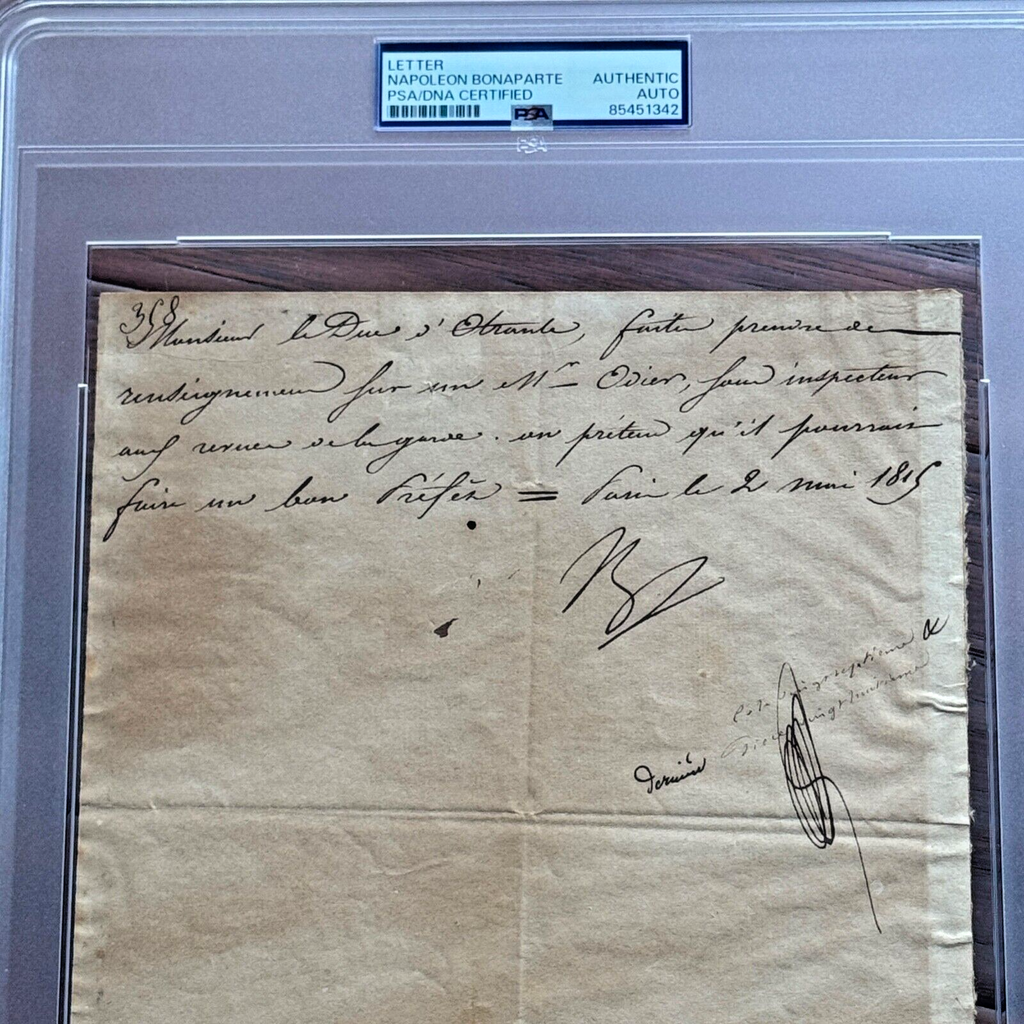 LETTER
NAPOLEON BONAPARTE AUTHENTIC
PSA/DNA CERTIFIED AUTO
PSA 85451342
PSA
358
Monsieur le Duc d'Otrante, faites prendre des
renseignemens sur un Mr Odier, sous inspecteur
aux revues de la garde. on prétend qu'il pourrait
faire un bon Préfet = Paris le 2 mai 1815
Cote vingt septieme &
dernière Piece vingt huitieme